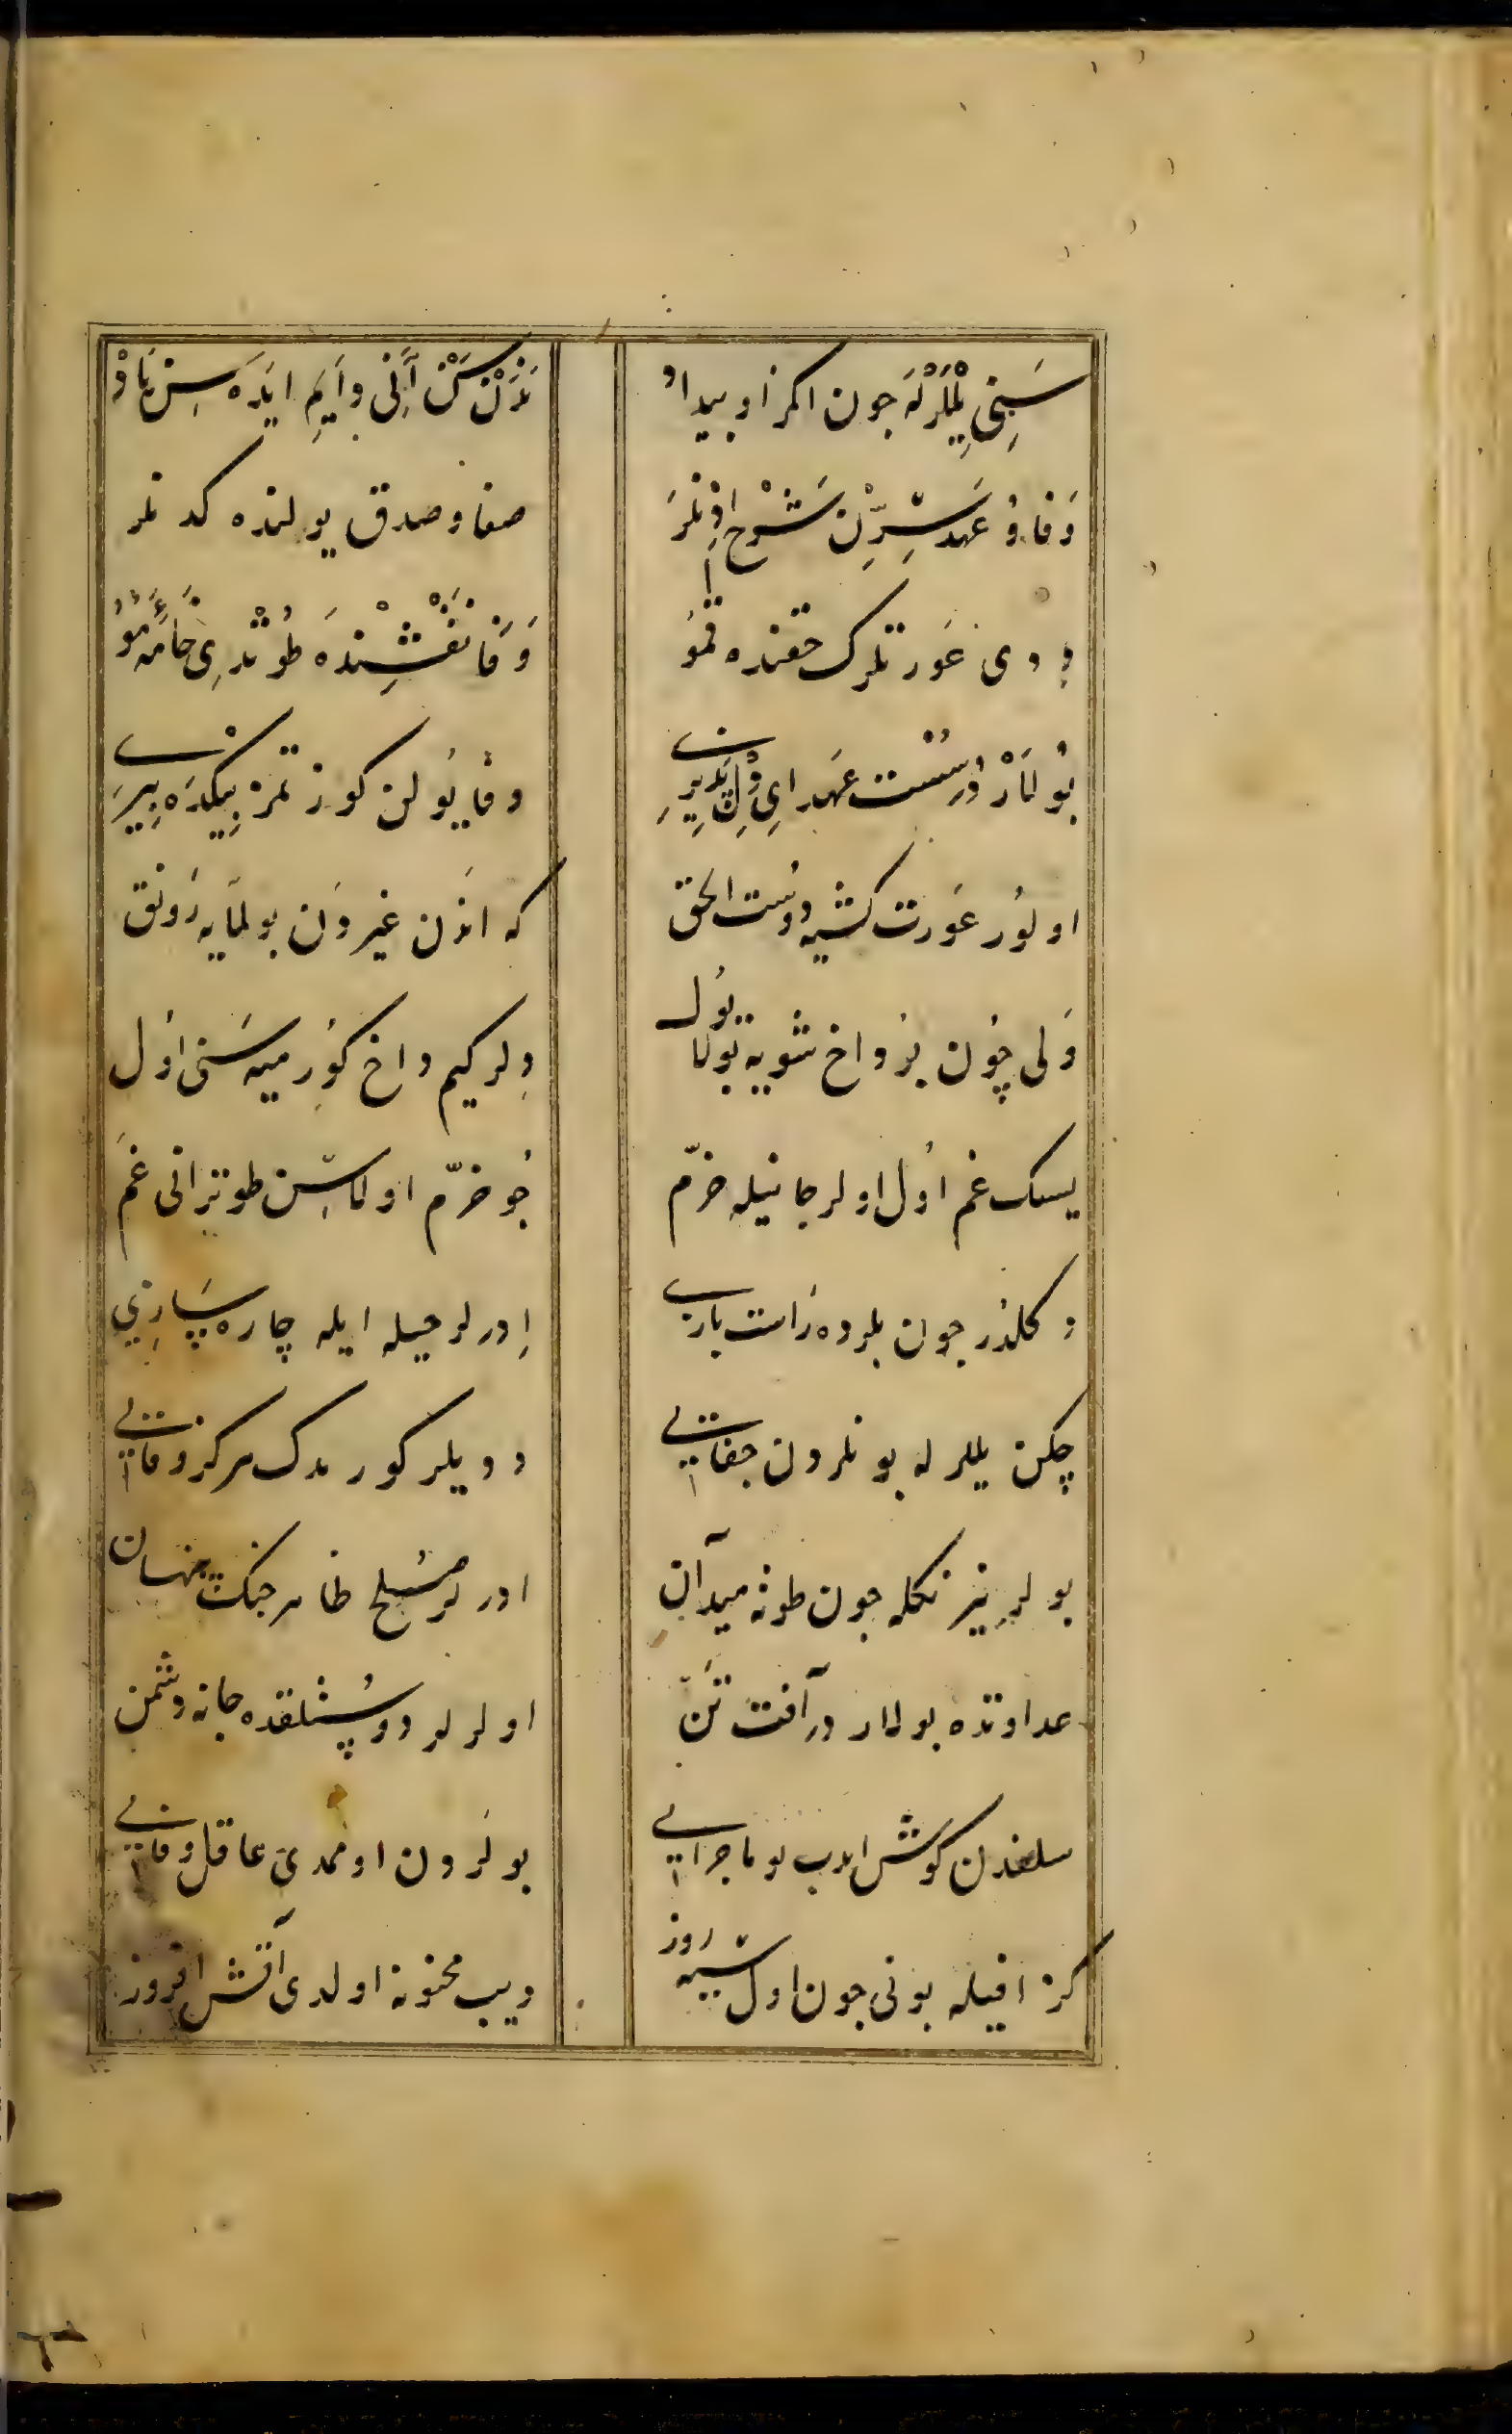 سَنِی ییللَرْلَه چون اکمز او بیداد نَدَنْ سَنْ آنِی دایَم ایدَه سِن یادْ
وَفا وُ عهد سِرِّنْ شَرْح اِدنلَرَ صفا و صدق یولنده کدنلر
ددی عَورتلرک حقنده قمُو وَفا نَقْشِنْدَه طُوتْدِی خامَهٔ مُو
بُولمَازْ دُرُسْت عهد ای وفا یُولن کوزتمز بیکدَه بِیرَ
اولُور عَورت کشیه دُوست الحق که اندن غیردَن بولمَایه رَونق
وَلی چُون بر داخ شویه بُولا یُول دِلر کیم داخ کورمیه سَنی اوُل
یسک غم اوُل اولر جانیله خرّم چُو خرّم اولاسِن طوتر انی غَم
دکلدُر چون بلرده رَاست بازی اِدرلر حیله ایله چاره سَازِی
چکن ییللرله بونلردن جفایی ددیلر کورمدک هرکز وفایی
بولر نیرنکله چون طوته میدان ادرلر صُلح ظاهر جنک پنهان
عداوتده بولار در آفت تَن اولرلر دوُستلقده جانه دشمن
سلفدن کوش ایدب بو ماجرایی بولَردن اوممدی عاقل وفایی
کزافیله بونی چون اول سیه روز دیب مجنونه اولدی آتش افروز